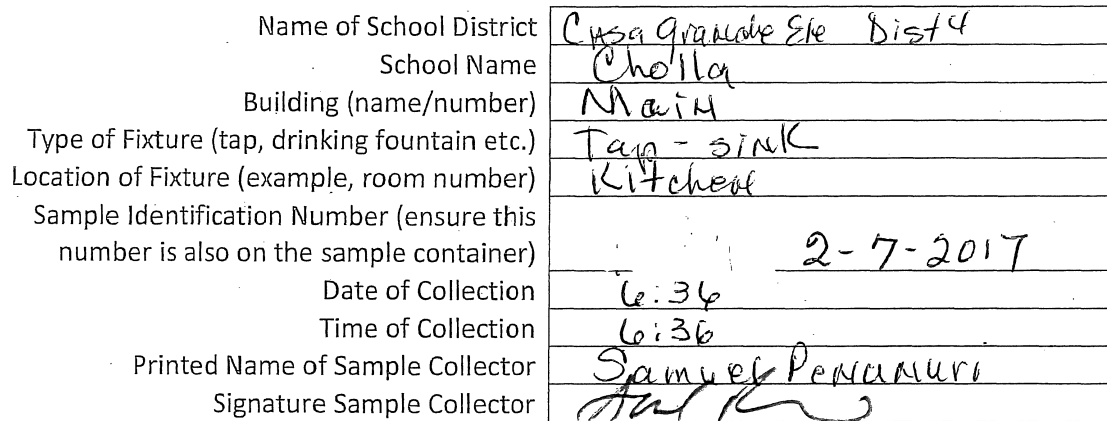 Name of School District Casa Grande Ele Dist 4
School Name Cholla
Building (name/number) Main
Type of Fixture (tap, drinking fountain etc.) Tap - sink
Location of Fixture (example, room number) Kitchen
Sample Identification Number (ensure this
number is also on the sample container) 2-7-2017
Date of Collection 6:36
Time of Collection 6:36
Printed Name of Sample Collector Samuel Penunuri
Signature Sample Collector